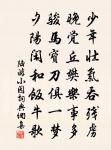 少年壯氣吞殘虜
晚覺丘樊樂事多
駿馬寶刀俱一夢
夕陽閑和飯牛歌
陸游小園詞典網集